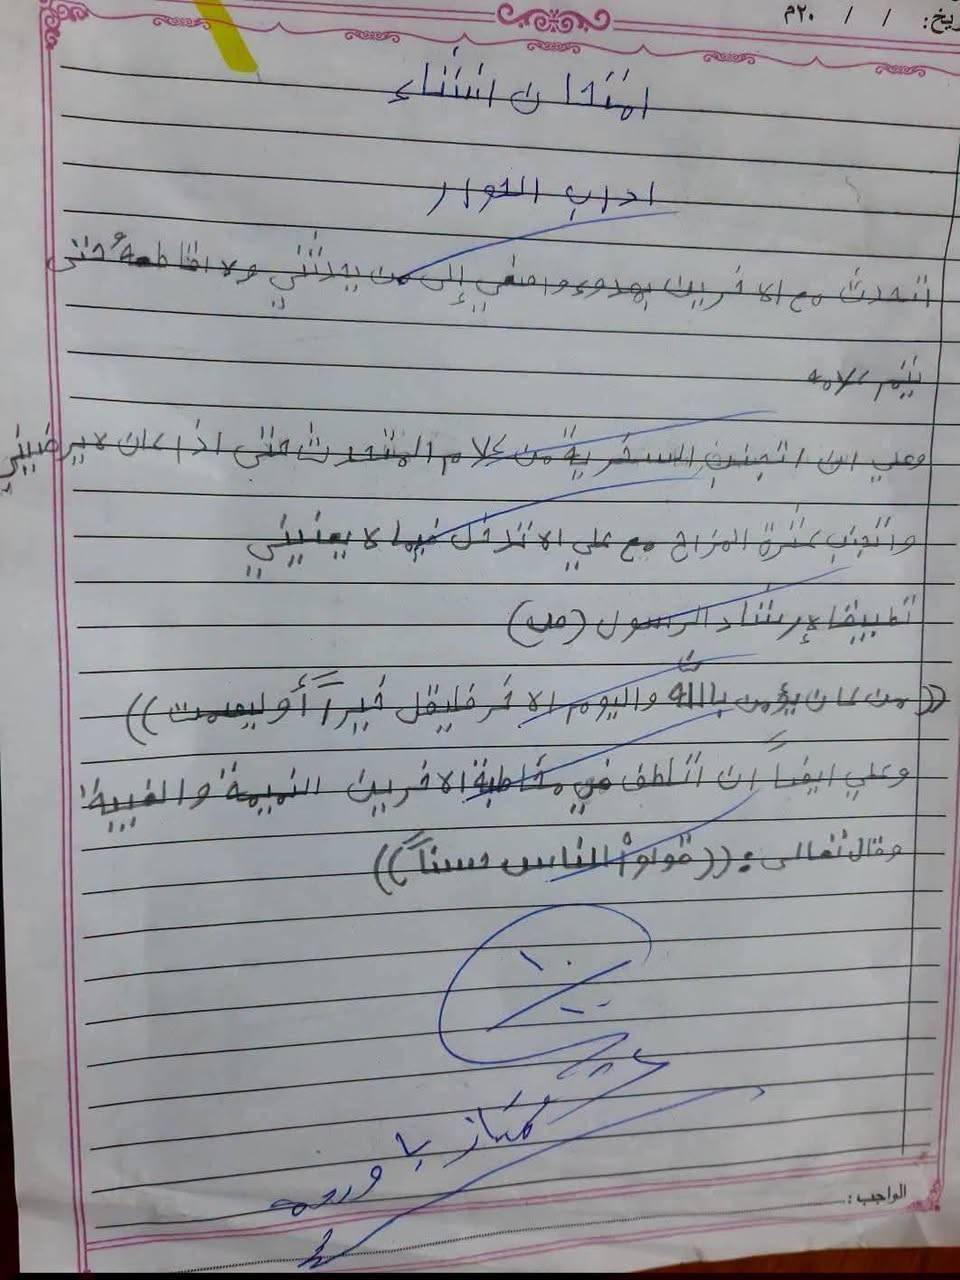 ريخ: / / ٢٠م
امتحان انشاء
اداب الحوار
اتحدث مع الاخرين بهدوء واصغي إلى من يحدثني ولا اقاطعهُ حتى
يتم كلامه
وعلي ان اتجنب السخرية من كلام المتحدث حتى اذا كان لايرضيني
واتجنب كثرة المزاح مع علي الا تدخل فيما لا يعنيني
تطبيقا لإرشاد الرسول (ص)
((من كان يؤمن بالله واليوم الاخر فليقل خيراً أو ليصمت))
وعلي ايضاً ان اتلطف في مخاطبة الاخرين النميمة والغيبة
وقال تعالى: ((قولوا للناس حسناً))
١٠
١٠
ممتاز يا ورده
الواجب: